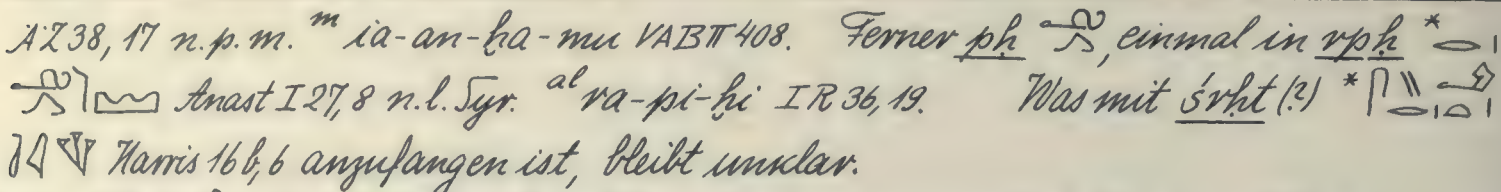 ÄZ 38, 17 n.p.m. ᵐ ia-an-ḫa-mu VAB II 408. Ferner pḥ, einmal in rpḥ *
Anast I 27, 8 n.l. Syr. ᵃˡ ra-pi-ḫi I R 36, 19. Was mit śrḥt (?) *
Harris 16 b, 6 anzufangen ist, bleibt unklar.